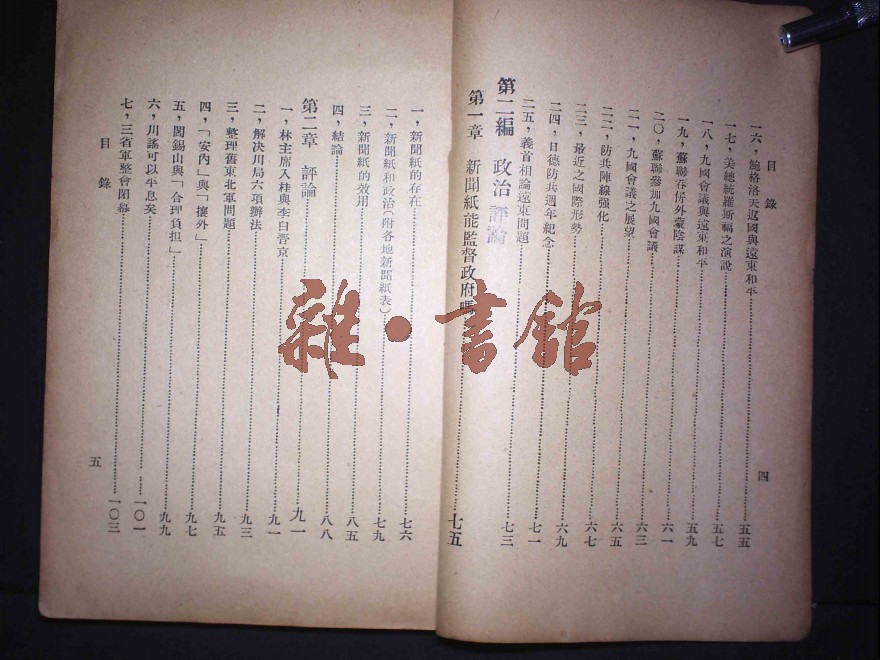 目錄
一六，鮑格洛夫返國與遠東和平……五五
一七，美總統羅斯福之演說……五七
一八，九國會議與遠東和平……五九
一九，蘇聯吞併外蒙陰謀……六一
二〇，蘇聯參加九國會議……六三
二一，九國會議之展望……六五
二二，防共陣線强化……六七
二三，最近之國際形勢……六九
二四，日德防共週年紀念……七一
二五，義首相論遠東問題……七三
第二編 政治評論
第一章 新聞紙能監督政府嗎……七五
四
一，新聞紙的存在……七六
二，新聞紙和政治（附各地新聞紙表）……七九
三，新聞紙的效用……八五
四，結論……八八
第二章 評論……九一
一，林主席入桂與李白晋京……九一
二，解决川局六項辦法……九三
三，整理舊東北軍問題……九五
四，「安內」與「攘外」……九七
五，閻錫山與「合理負担」……九九
六，川謠可以平息矣……一〇一
七，三省軍整會閉幕……一〇三
目錄
五
雜·書館